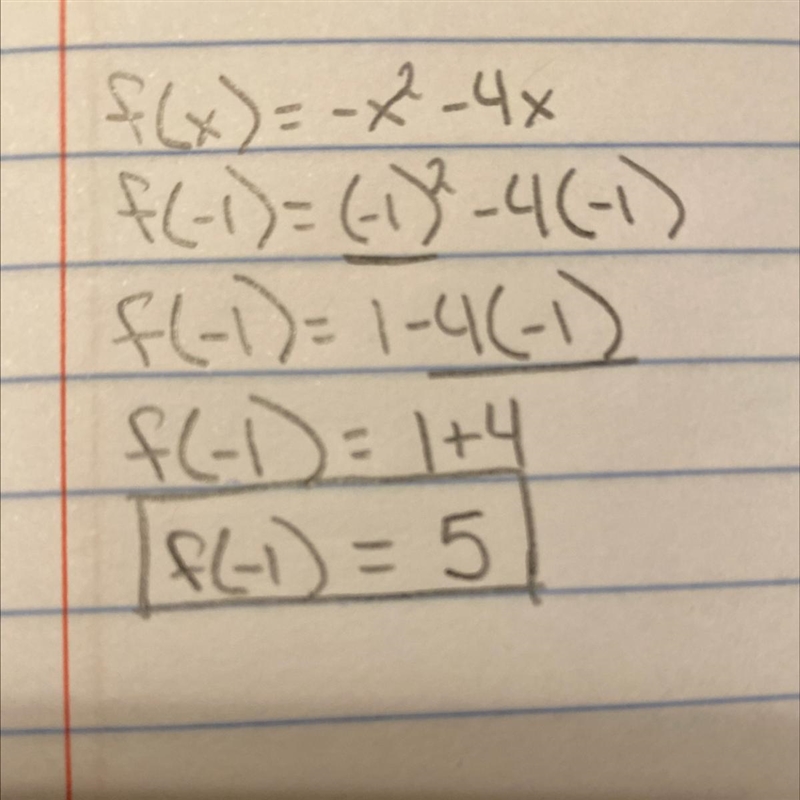 f(x) = -x² - 4x
f(-1) = (-1)² - 4(-1)
f(-1) = 1 - 4(-1)
f(-1) = 1 + 4
f(-1) = 5